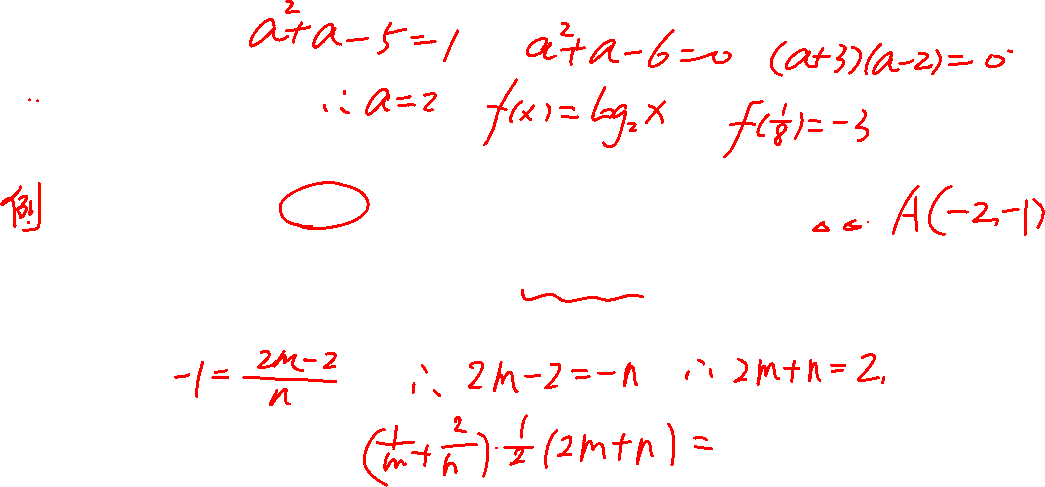 a²+a-5=1 a²+a-6=0 (a+3)(a-2)=0
∴a=2 f(x)=log₂x f(1/8)=-3
例 A(-2,-1)
-1=(2m-2)/n ∴2m-2=-n ∴2m+n=2,
(1/m+2/n)·1/2(2m+n)=